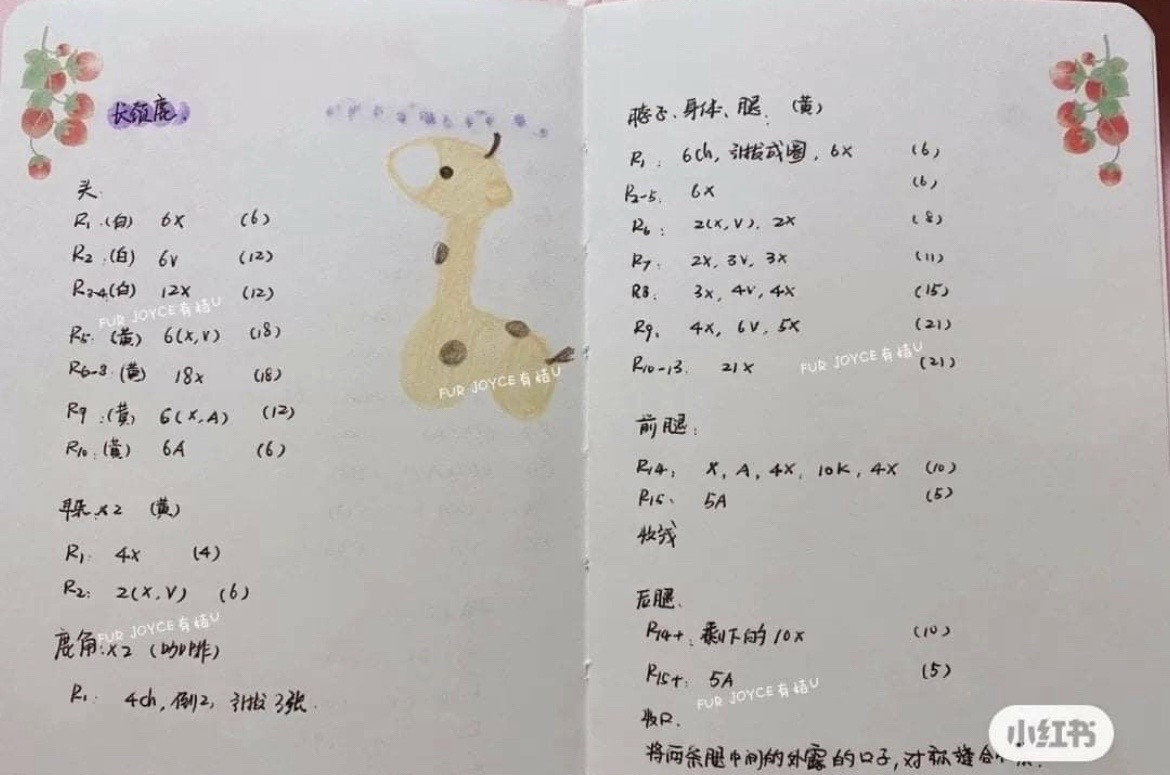 长颈鹿.
头.
R1.(白) 6x (6)
R2.(白) 6v (12)
R3-4.(白) 12x (12)
FUR JOYCE有桔U
R5.(黄) 6(x,v) (18)
R6-8.(黄) 18x (18)
R9.(黄) 6(x,A) (12)
R10.(黄) 6A (6)
耳朵x2 (黄)
R1. 4x (4)
R2: 2(x,v) (6)
FUR JOYCE有桔U
鹿角:x2 (咖啡)
R1. 4ch,倒2,引拔3张.
FUR JOYCE有桔U
脖子、身体、腿. (黄)
R1: 6ch, 引拔成圈, 6x (6)
R2-5. 6x (6)
R6: 2(x,v), 2x (8)
R7: 2x, 3v, 3x (11)
R8. 3x, 4v, 4x (15)
R9. 4x, 6v, 5x (21)
R10-13. 21x (21)
FUR JOYCE有桔U
前腿:
R14: x, A, 4x, 10K, 4x (10)
R15. 5A (5)
收线
后腿.
R14+: 剩下的10x (10)
R15+: 5A (5)
FUR JOYCE有桔U
收口.
将两条腿中间的外露的口子,对称缝合
小红书